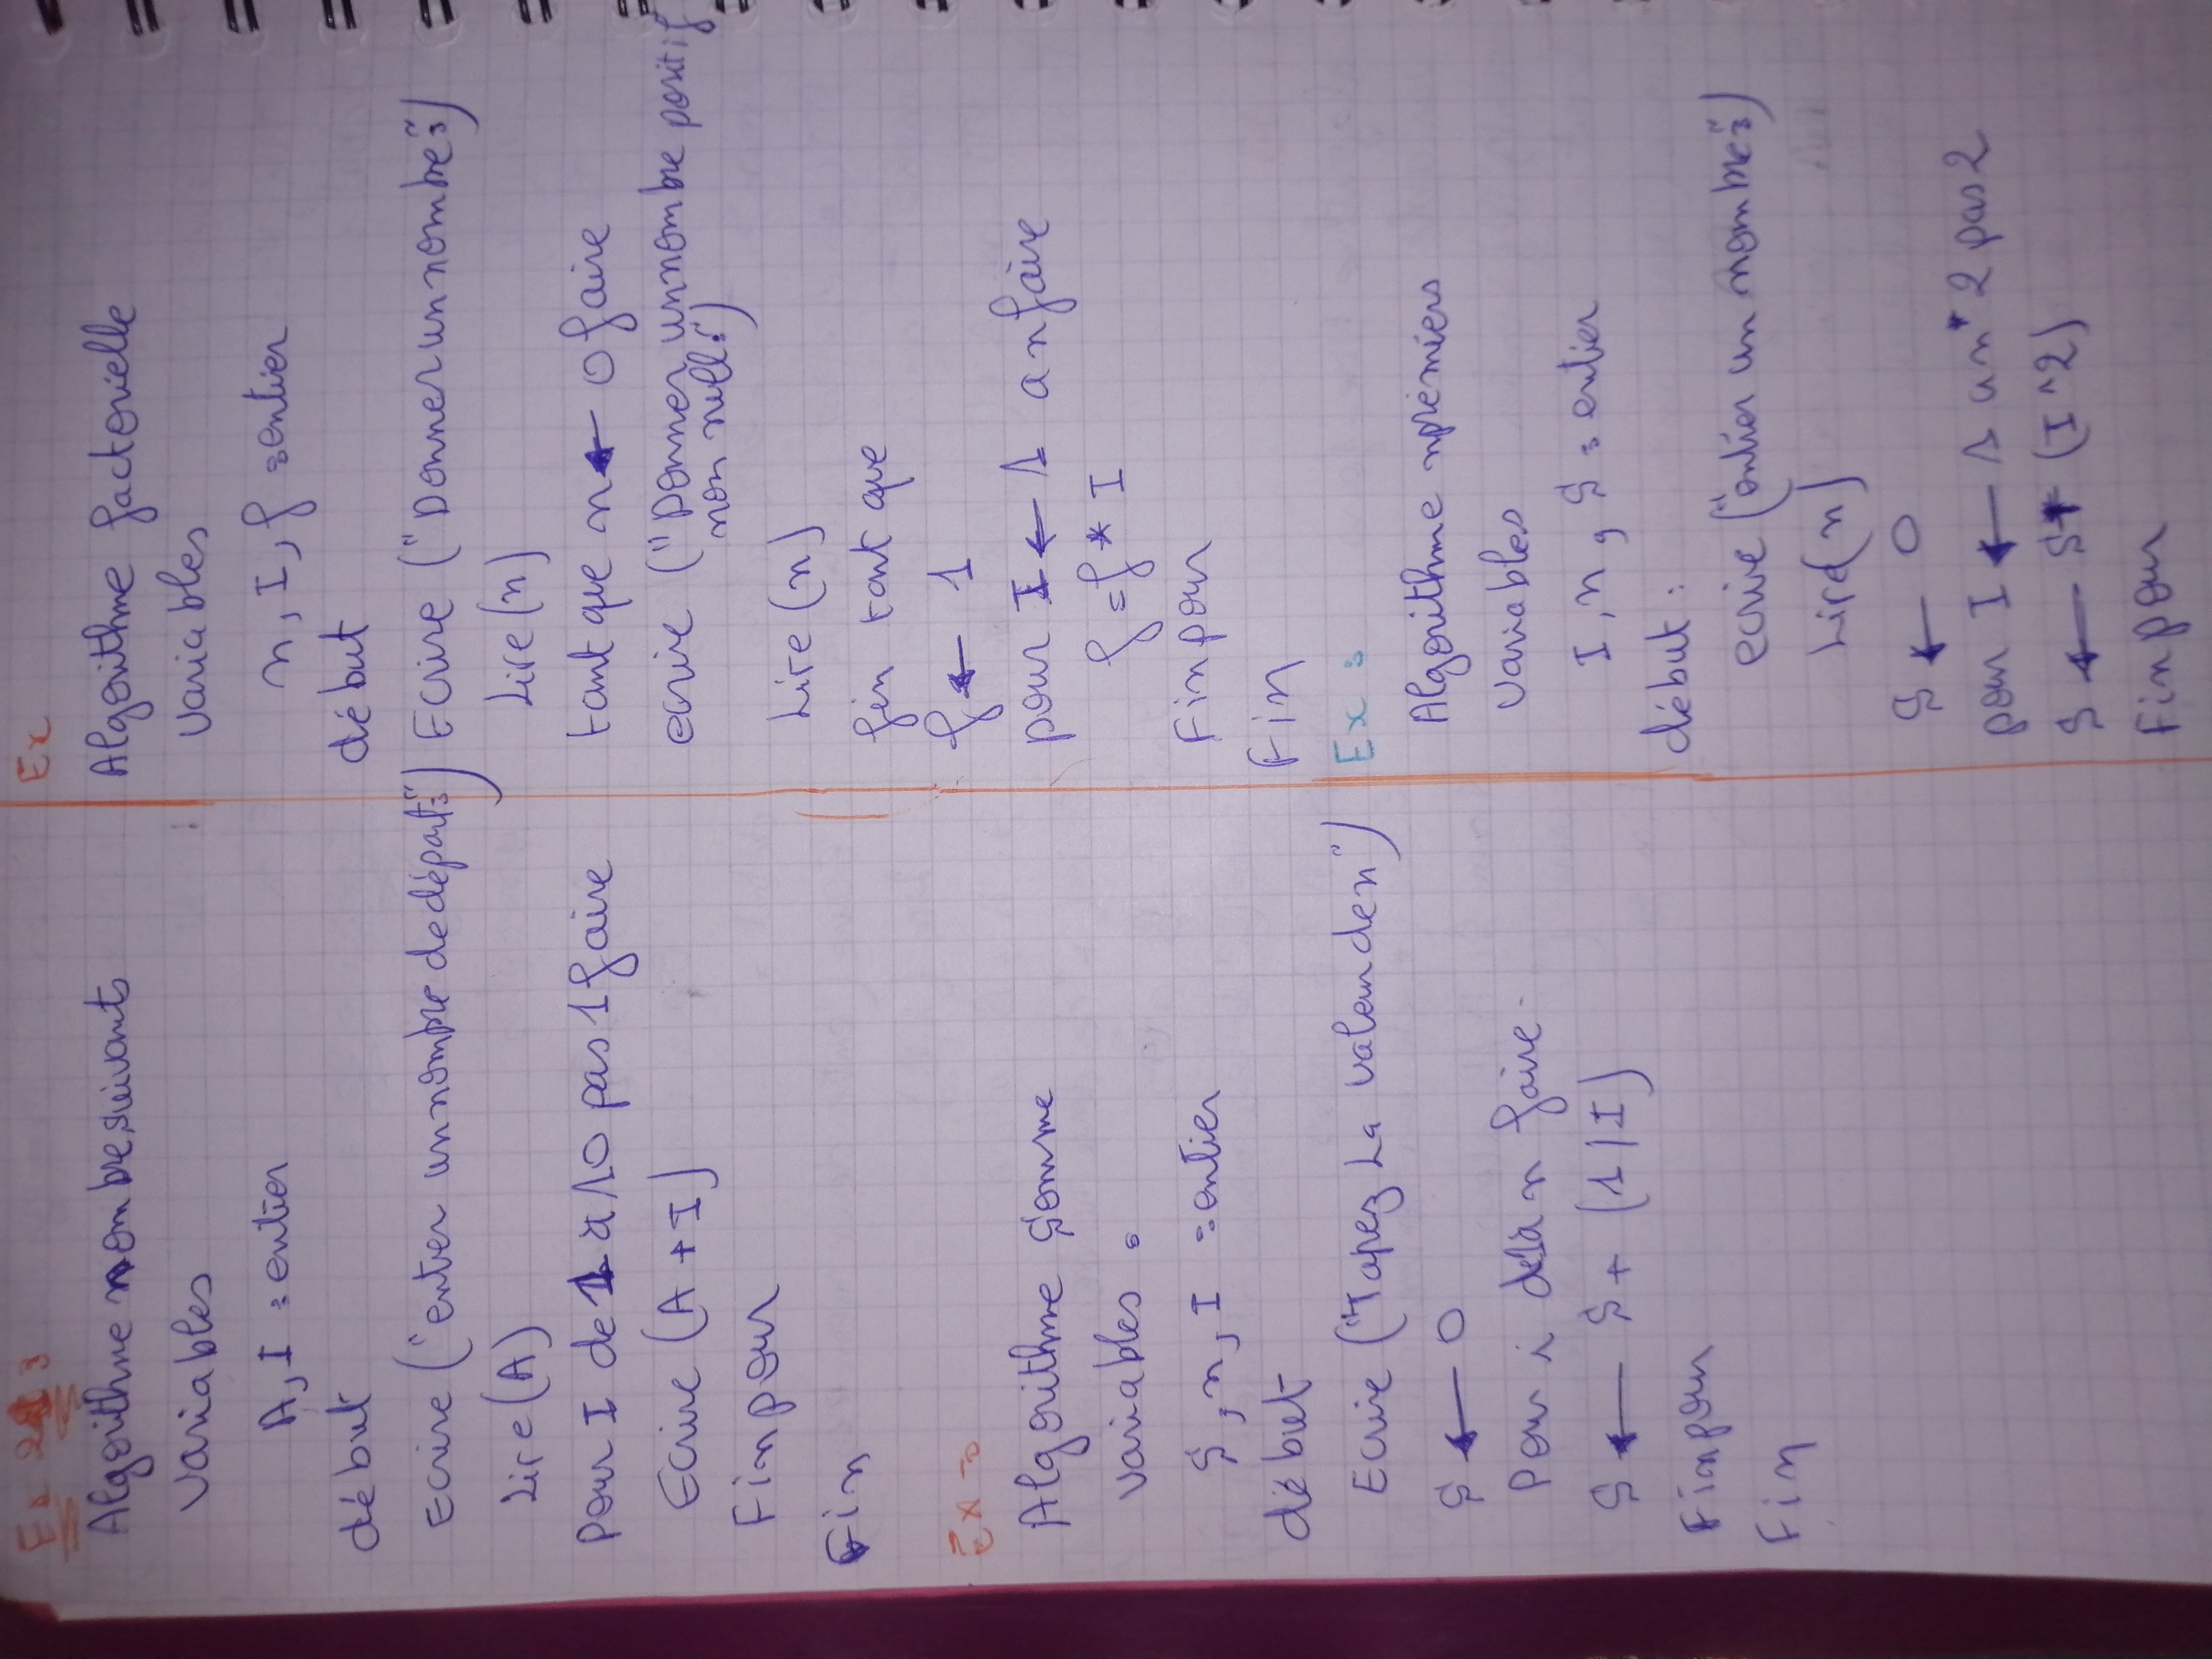 Ex 3
Algorithme nombre suivants
variables
A, I : entier
début
Ecrire ("entrer un nombre de départ:")
Lire (A)
Pour I de 1 à 10 pas 1 faire
Ecrire (A + I)
Fin pour
Fin
Ex
Algorithme somme
variables :
S, n, I : entier
début
Ecrire ("Tapez La valeur de n")
S ← 0
Pour i de 1 à n faire
S ← S + (1/I)
Fin pour
Fin
Ex
Algorithme factorielle
variables
n, I, f : entier
début
Ecrire ("Donner un nombre:")
Lire (n)
tant que n ← 0 faire
ecrire ("Donner un nombre positif
non null:")
Lire (n)
fin tant que
f ← 1
pour I ← 1 a n faire
f = f * I
Fin pour
Fin
Ex :
Algorithme npremiers
variables
I, n, S : entier
début :
ecrire ("entier un nombre:")
Lire (n)
S ← 0
pour I ← 1 a n* 2 pas 2
S ← S + (I ^ 2)
Fin pour